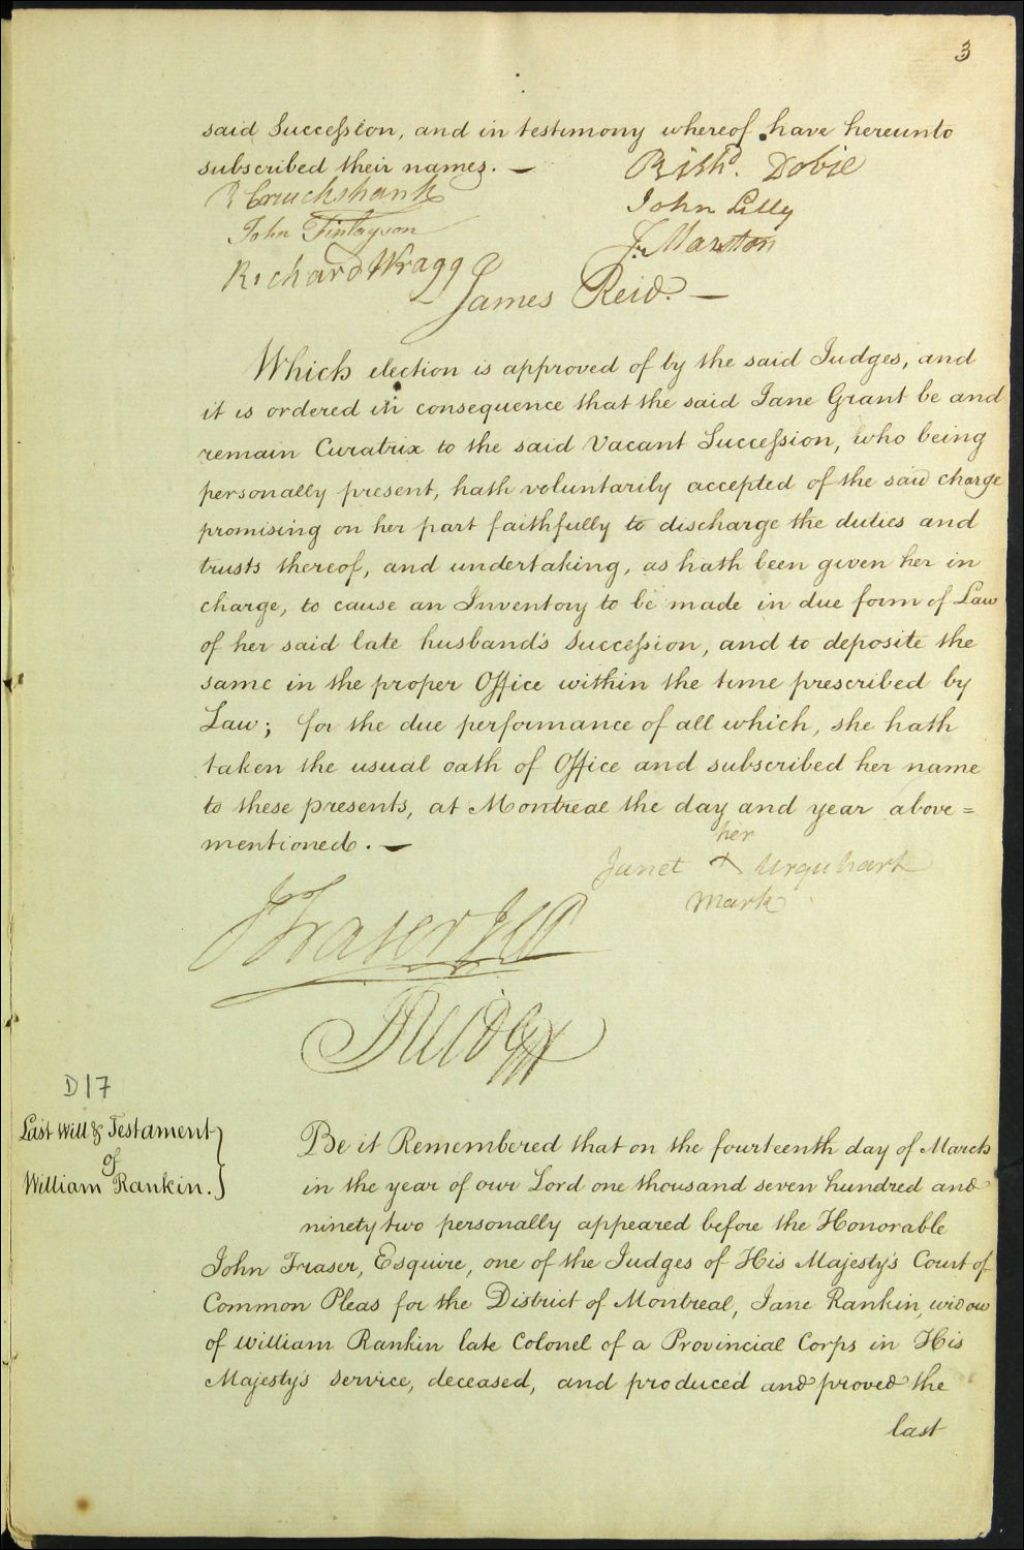 3
said Succession, and in testimony whereof have hereunto
subscribed their names. —
Richd. Dobie
R Cruickshank
John Lilly
John Finlayson
J. Marston
Richard Wragg
James Reid. —
Which election is approved of by the said Judges, and
it is ordered in consequence that the said Jane Grant be and
remain Curatrix to the said Vacant Succession, who being
personally present, hath voluntarily accepted of the said charge
promising on her part faithfully to discharge the duties and
trusts thereof, and undertaking, as hath been given her in
charge, to cause an Inventory to be made in due form of Law
of her said late husband's Succession, and to deposite the
same in the proper Office within the time prescribed by
Law; for the due performance of all which, she hath
taken the usual oath of Office and subscribed her name
to these presents, at Montreal the day and year above=
mentioned. —
her
Janet + Urquhart
mark
J Fraser JCP
D17
Last Will & Testament
of
William Rankin.
Be it Remembered that on the fourteenth day of March
in the year of our Lord one thousand seven hundred and
ninety two personally appeared before the Honorable
John Fraser, Esquire, one of the Judges of His Majesty's Court of
Common Pleas for the District of Montreal, Jane Rankin, widow
of William Rankin late Colonel of a Provincial Corps in His
Majesty's Service, deceased, and produced and proved the
last